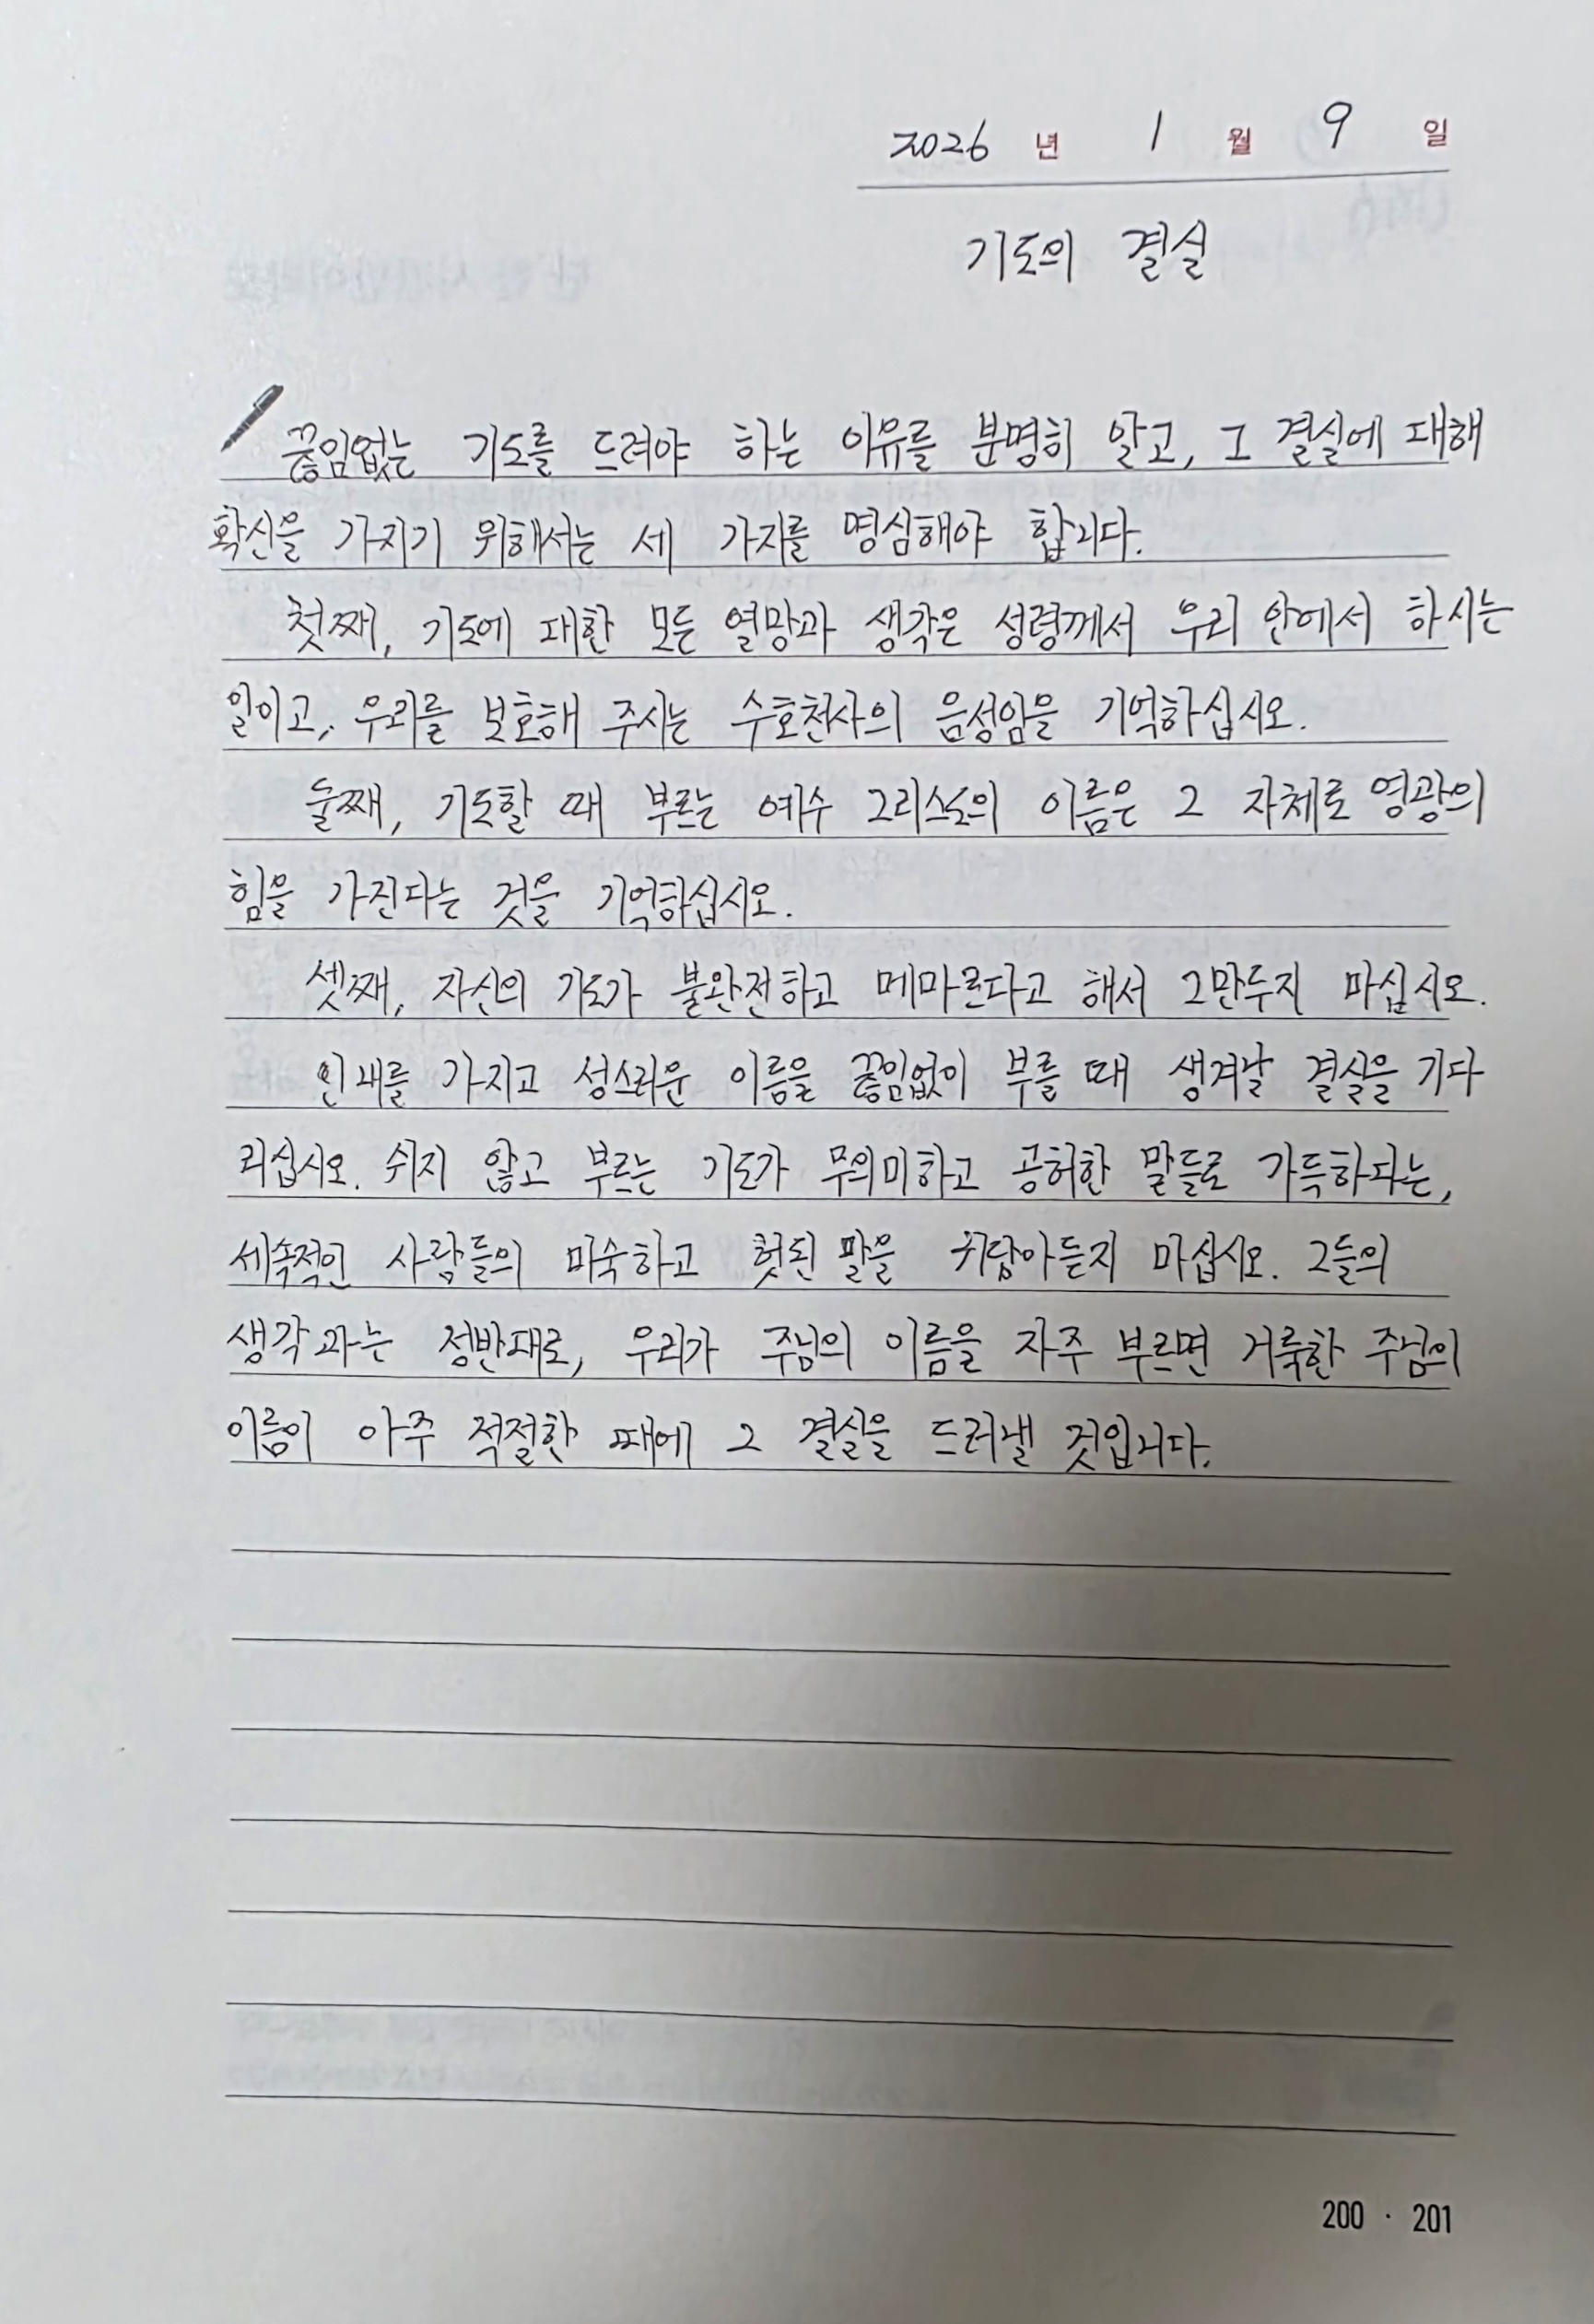 2026 년 1 월 9 일
기도의 결실
끊임없는 기도를 드려야 하는 이유를 분명히 알고, 그 결실에 대해
확신을 가지기 위해서는 세 가지를 명심해야 합니다.
첫째, 기도에 대한 모든 열망과 생각은 성령께서 우리 안에서 하시는
일이고, 우리를 보호해 주시는 수호천사의 음성임을 기억하십시오.
둘째, 기도할 때 부르는 예수 그리스도의 이름은 그 자체로 영광의
힘을 가진다는 것을 기억하십시오.
셋째, 자신의 기도가 불완전하고 메마르다고 해서 그만두지 마십시오.
인내를 가지고 성스러운 이름을 끊임없이 부를 때 생겨날 결실을 기다
리십시오. 쉬지 않고 부르는 기도가 무의미하고 공허한 말들로 가득하다는,
세속적인 사람들의 미숙하고 헛된 말을 귀담아듣지 마십시오. 그들의
생각과는 정반대로, 우리가 주님의 이름을 자주 부르면 거룩한 주님의
이름이 아주 적절한 때에 그 결실을 드러낼 것입니다.
200 · 201